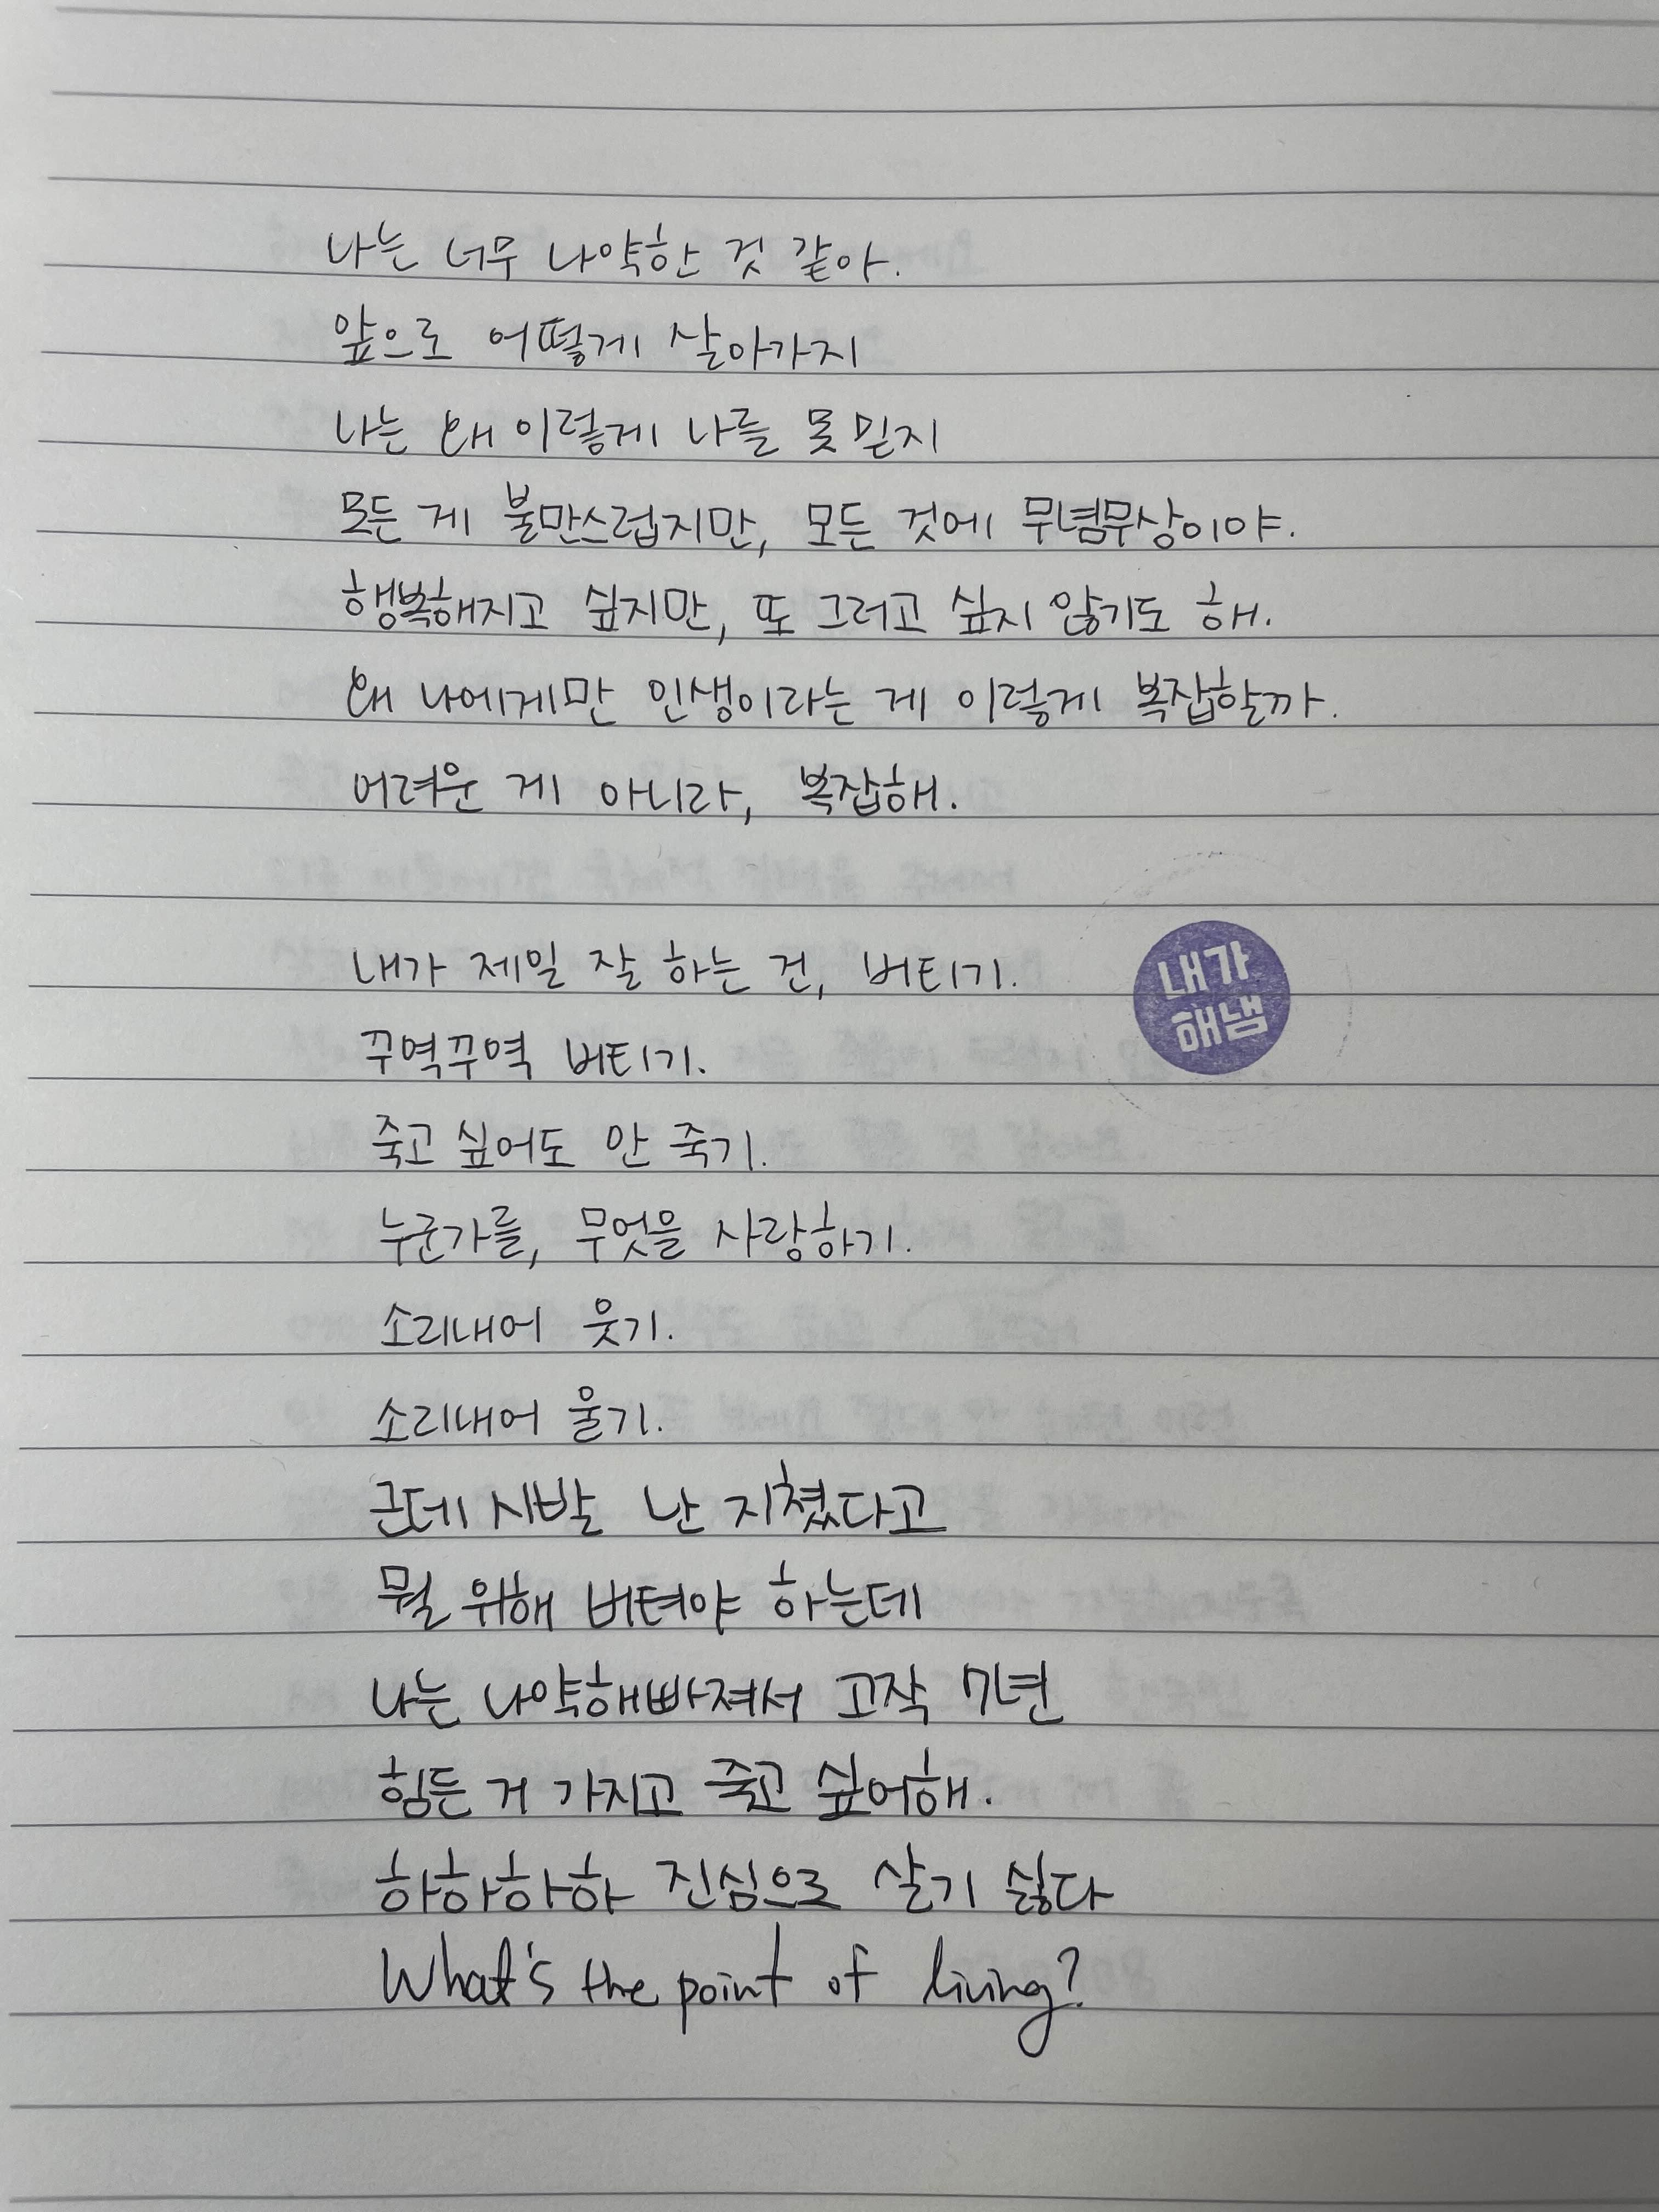 나는 너무 나약한 것 같아.
앞으로 어떻게 살아가지
나는 왜 이렇게 나를 못 믿지
모든 게 불만스럽지만, 모든 것에 무념무상이야.
행복해지고 싶지만, 또 그러고 싶지 않기도 해.
왜 나에게만 인생이라는 게 이렇게 복잡할까.
어려운 게 아니라, 복잡해.
내가 제일 잘 하는 건, 버티기.
내가
해냄
꾸역꾸역 버티기.
죽고 싶어도 안 죽기.
누군가를, 무엇을 사랑하기.
소리내어 웃기.
소리내어 울기.
근데 시발 난 지쳤다고
뭘 위해 버텨야 하는데
나는 나약해빠져서 고작 7년
힘든 거 가지고 죽고 싶어해.
하하하하 진심으로 살기 싫다
What's the point of living?